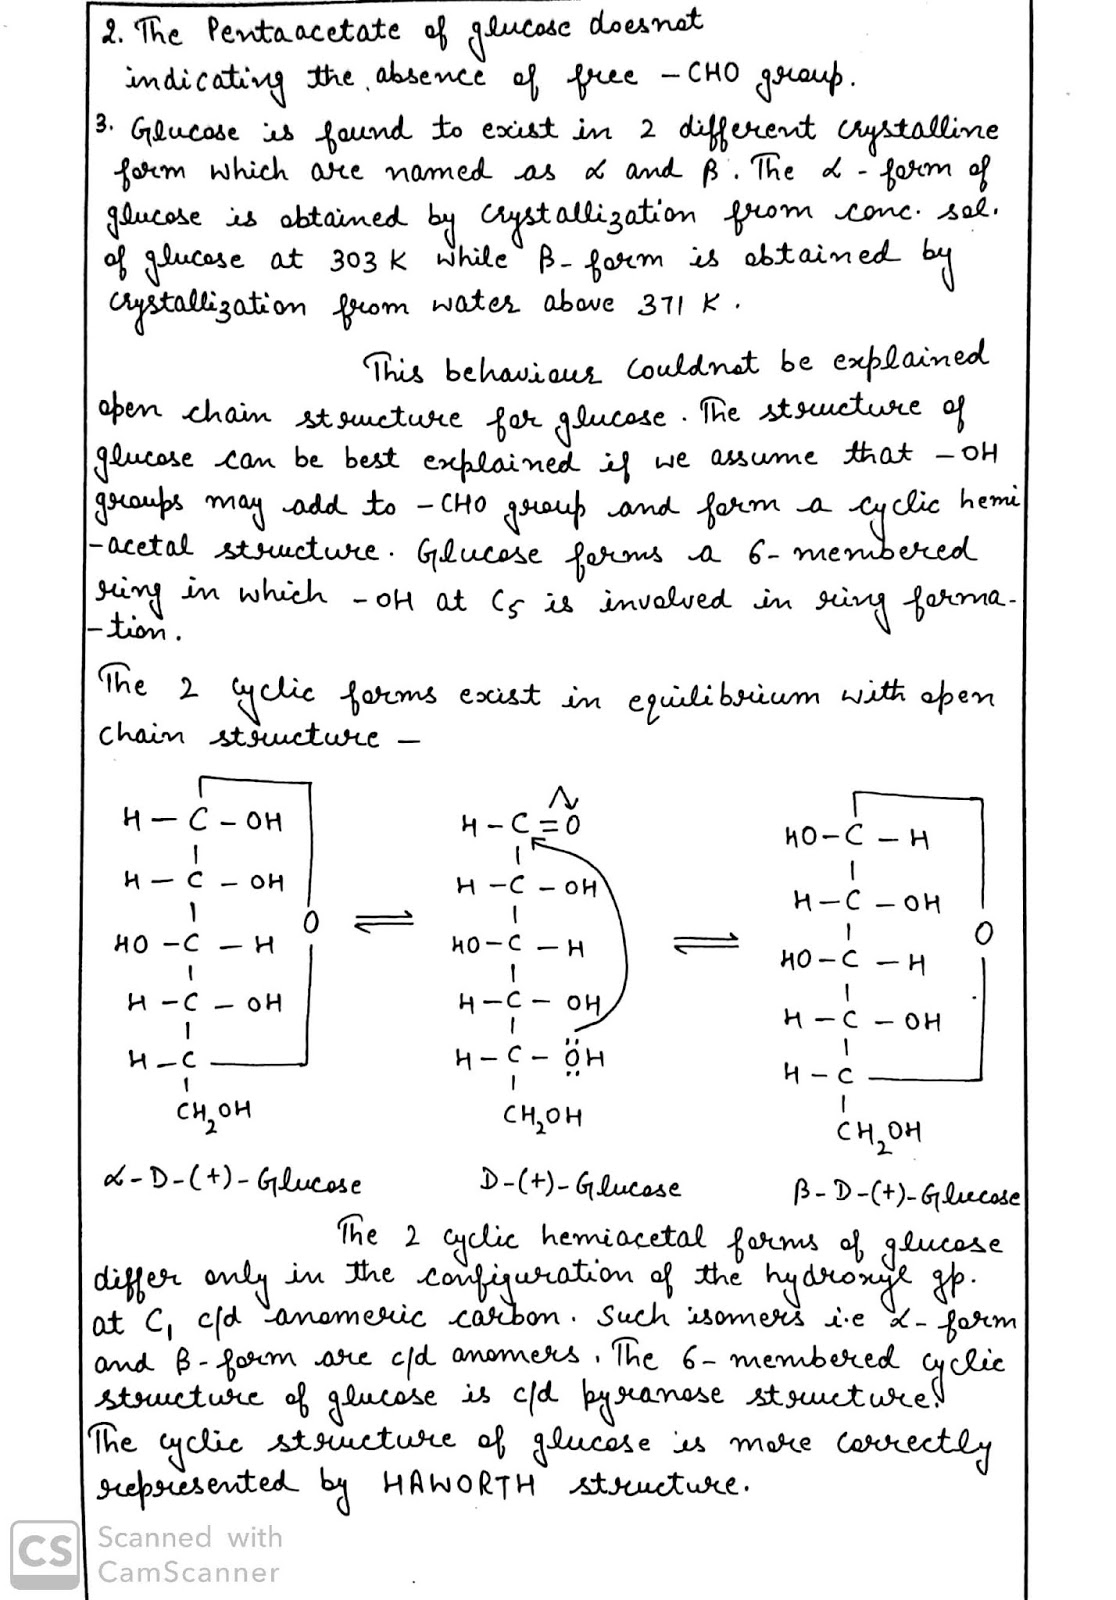 2. The Pentaacetate of glucose doesnot
indicating the absence of free - CHO group.
3. Glucose is found to exist in 2 different crystalline
form which are named as α and β. The α - form of
glucose is obtained by crystallization from conc. sol.
of glucose at 303 K while β- form is obtained by
crystallization from water above 371 K .
This behaviour couldnot be explained
open chain structure for glucose . The structure of
glucose can be best explained if we assume that - OH
groups may add to - CHO group and form a cyclic hemi
-acetal structure. Glucose forms a 6- membered
ring in which - OH at C5 is involved in ring forma-
-tion.
The 2 cyclic forms exist in equilibrium with open
chain structure -
H - C - OH
H - C - OH
HO - C - H
H - C - OH
H - C
CH₂OH
O
α-D-(+)-Glucose
⇌
H - C = O
H - C - OH
HO - C - H
H - C - OH
H - C - ÖH
CH₂OH
D-(+)-Glucose
⇌
HO - C - H
H - C - OH
HO - C - H
H - C - OH
H - C
CH₂OH
O
β-D-(+)-Glucose
The 2 cyclic hemiacetal forms of glucose
differ only in the configuration of the hydroxyl gp.
at C₁ c/d anomeric carbon. Such isomers i.e α- form
and β- form are c/d anomers. The 6- membered cyclic
structure of glucose is c/d pyranose structure.
The cyclic structure of glucose is more correctly
represented by HAWORTH structure.
CS
Scanned with
CamScanner